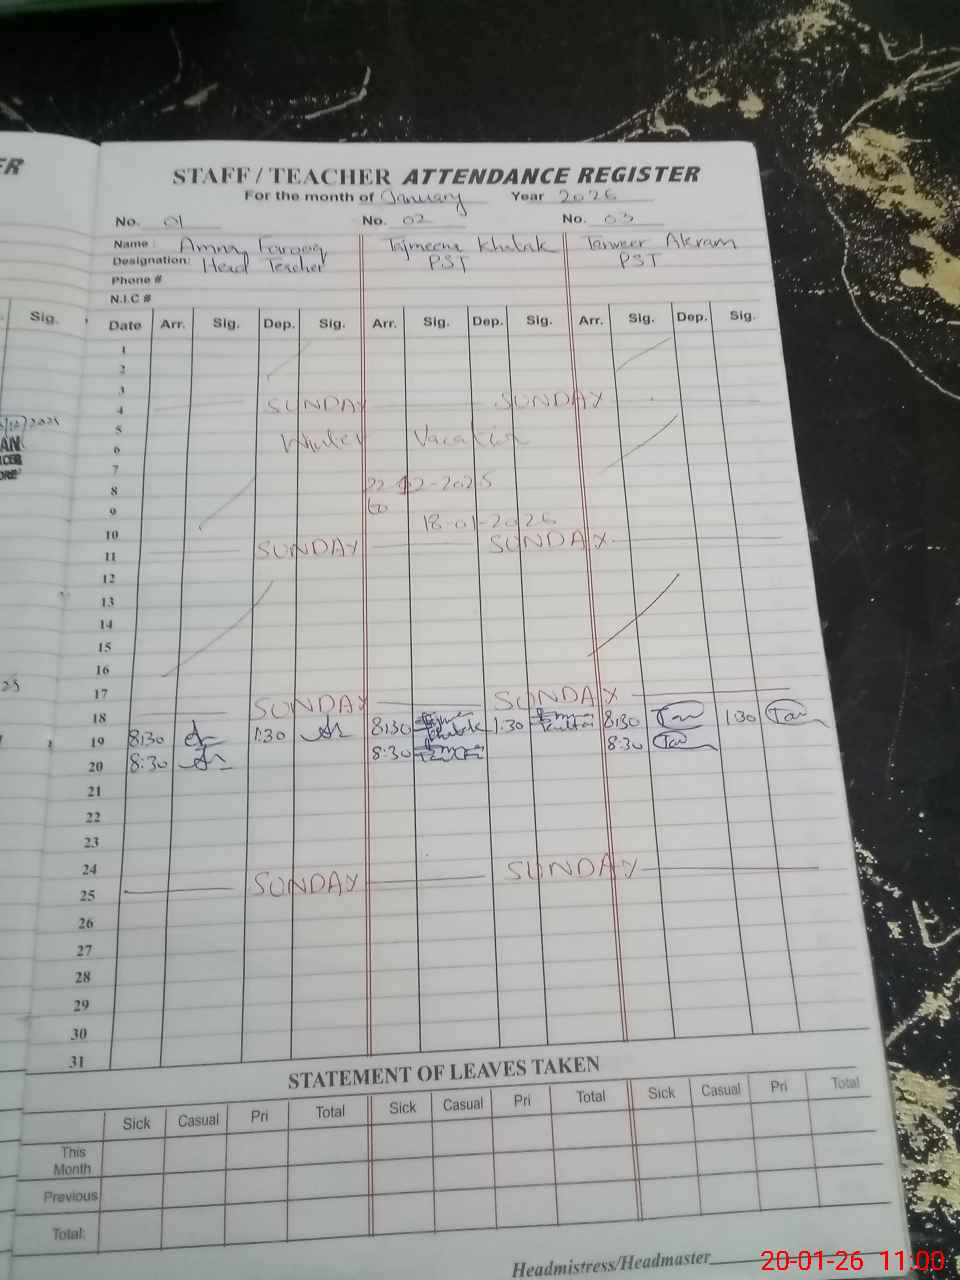 ER
STAFF / TEACHER ATTENDANCE REGISTER
For the month of January Year 2026
No. 01 No. 02 No. 03
Name: Amna Farooq Tajmeena Khatak Tanveer Akram
Designation: Head Teacher PST PST
Phone #
N.I.C #
Sig.
Date Arr. Sig. Dep. Sig. Arr. Sig. Dep. Sig. Arr. Sig. Dep. Sig.
1
2
3
4 SUNDAY SUNDAY
5
6 Winter Vacation
7
8 22-12-2025
9 to
10 18-01-2026
11 SUNDAY SUNDAY
12
13
14
15
16
17
18 SUNDAY SUNDAY
19 8:30 1:30 8:30 1:30 8:30 1:30
20 8:30 8:30 8:30
21
22
23
24
25 SUNDAY SUNDAY
26
27
28
29
30
31
STATEMENT OF LEAVES TAKEN
Sick Casual Pri Total Sick Casual Pri Total Sick Casual Pri Total
This Month
Previous
Total:
Headmistress/Headmaster
20-01-26 11:00